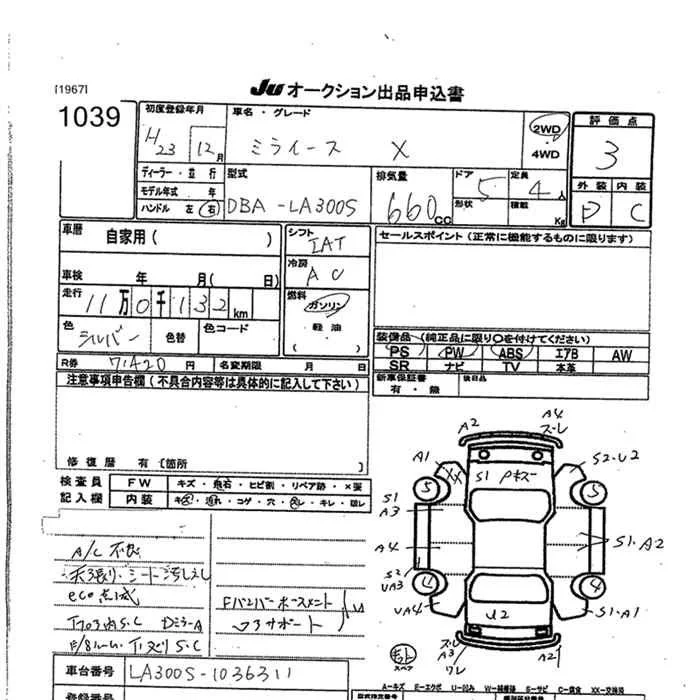 [1967]
JU オークション出品申込書
1039
初度登録年月
H23 12月
車名・グレード
ミライース X
2WD
・
4WD
評価点
3
ディーラー・並行
モデル年式 年
ハンドル 左 右
型式
DBA-LA300S
排気量
660 CC
ドア
5
形状
定員
4 人
積載
Kg
外装 内装
D C
車歴
自家用( )
シフト
IAT
セールスポイント(正常に機能するものに限ります)
冷房
AC
車検 年 月( 日)
走行
11万0千132km
燃料
ガソリン
軽油
( )
色
シルバー
色替
色コード
装備品(純正品に限り○を付けてください)
PS PW ABS エアB AW
SR ナビ TV 本革
R券 71420 円 名変期限 月 日
新車保証書
有・無
後日品
注意事項申告欄(不具合内容等は具体的に記入して下さい)
修復歴 有(箇所
検査員
記入欄
FW キズ・飛石・ヒビ割・リペア跡・×要
内装 キズ・汚れ・コゲ・穴・スレ・キレ・破レ
A2
A4
スレ
A1
XX
S1 Pキズ
S2・U2
5
5
S1
A3
A4
S1・A2
S2
UA3
4
4
UA4
U2
S1・A1
スレ
A3
ワレ
A2
スペア
A/C 不良
eco点滅
車台番号 LA300S-1036311
登録番号
A-キズ E-エクボ U-凹み W-補修跡 S-サビ C-腐食 XX-交換済